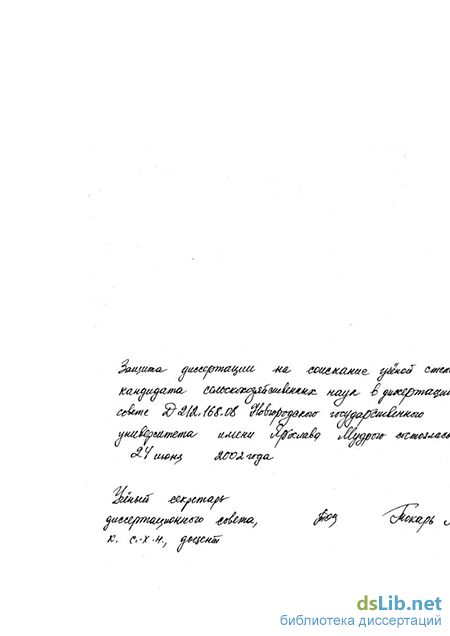 Защита диссертации на соискание учёной степе
кандидата сельскохозяйственных наук в диссертаци
совете Д 212.168.08 Новгородского государственного
университета имени Ярослава Мудрого состоялась
24 июня 2002 года
Учёный секретарь
диссертационного совета, Токарь
к. с.-х.н., доцент
dsLib.net
библиотека диссертаций